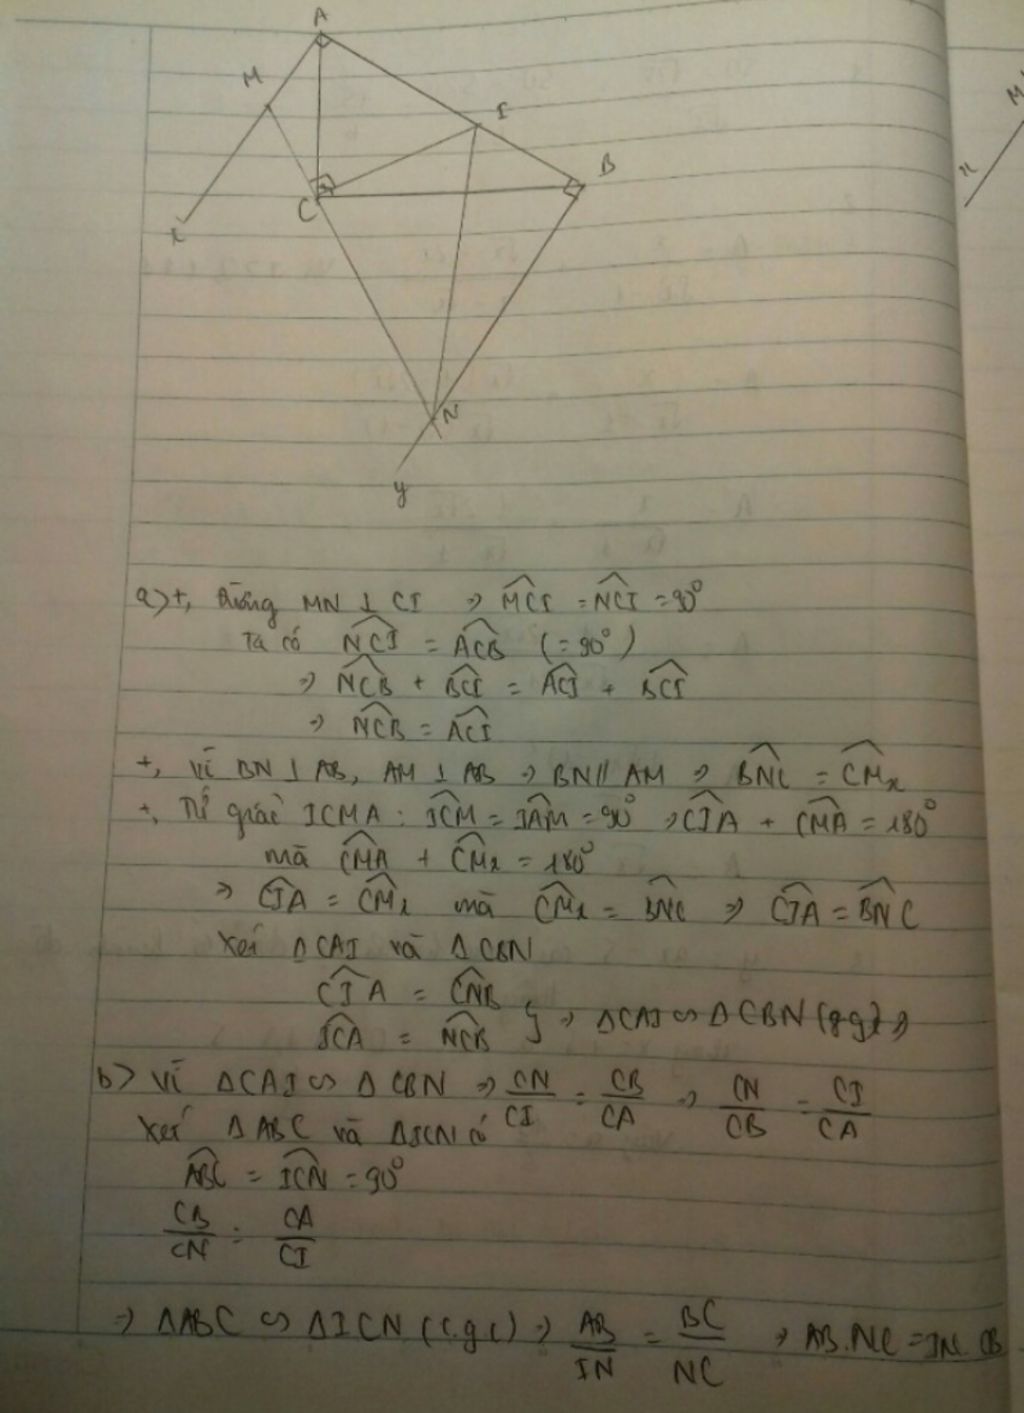 A
M
I
B
C
x
N
y
M
x
a) +, trong MN ⊥ CI ⇒ \widehat{MCI} = \widehat{NCI} = 90°
Ta có \widehat{NCI} = \widehat{ACB} (= 90°)
⇒ \widehat{NCB} + \widehat{BCI} = \widehat{ACI} + \widehat{BCI}
⇒ \widehat{NCB} = \widehat{ACI}
+, Vì BN ⊥ AB, AM ⊥ AB ⇒ BN // AM ⇒ \widehat{BNC} = \widehat{CMx}
+, Tứ giác ICMA : \widehat{ICM} = \widehat{IAM} = 90° ⇒ \widehat{CIA} + \widehat{CMA} = 180°
mà \widehat{CMA} + \widehat{CMx} = 180°
⇒ \widehat{CIA} = \widehat{CMx} mà \widehat{CMx} = \widehat{BNC} ⇒ \widehat{CIA} = \widehat{BNC}
Xét Δ CAI và Δ CBN
\widehat{CIA} = \widehat{CNB}
\widehat{ICA} = \widehat{NCB} } ⇒ ΔCAI ∽ ΔCBN (g.g)
b) Vì ΔCAI ∽ Δ CBN ⇒ CN/CI = CB/CA ⇒ CN/CB = CI/CA
Xét Δ ABC và ΔICN có
\widehat{ABC} = \widehat{ICN} = 90°
CB/CN = CA/CI
⇒ ΔABC ∽ ΔICN (c.g.c) ⇒ AB/IN = BC/NC ⇒ AB.NC = IN.CB